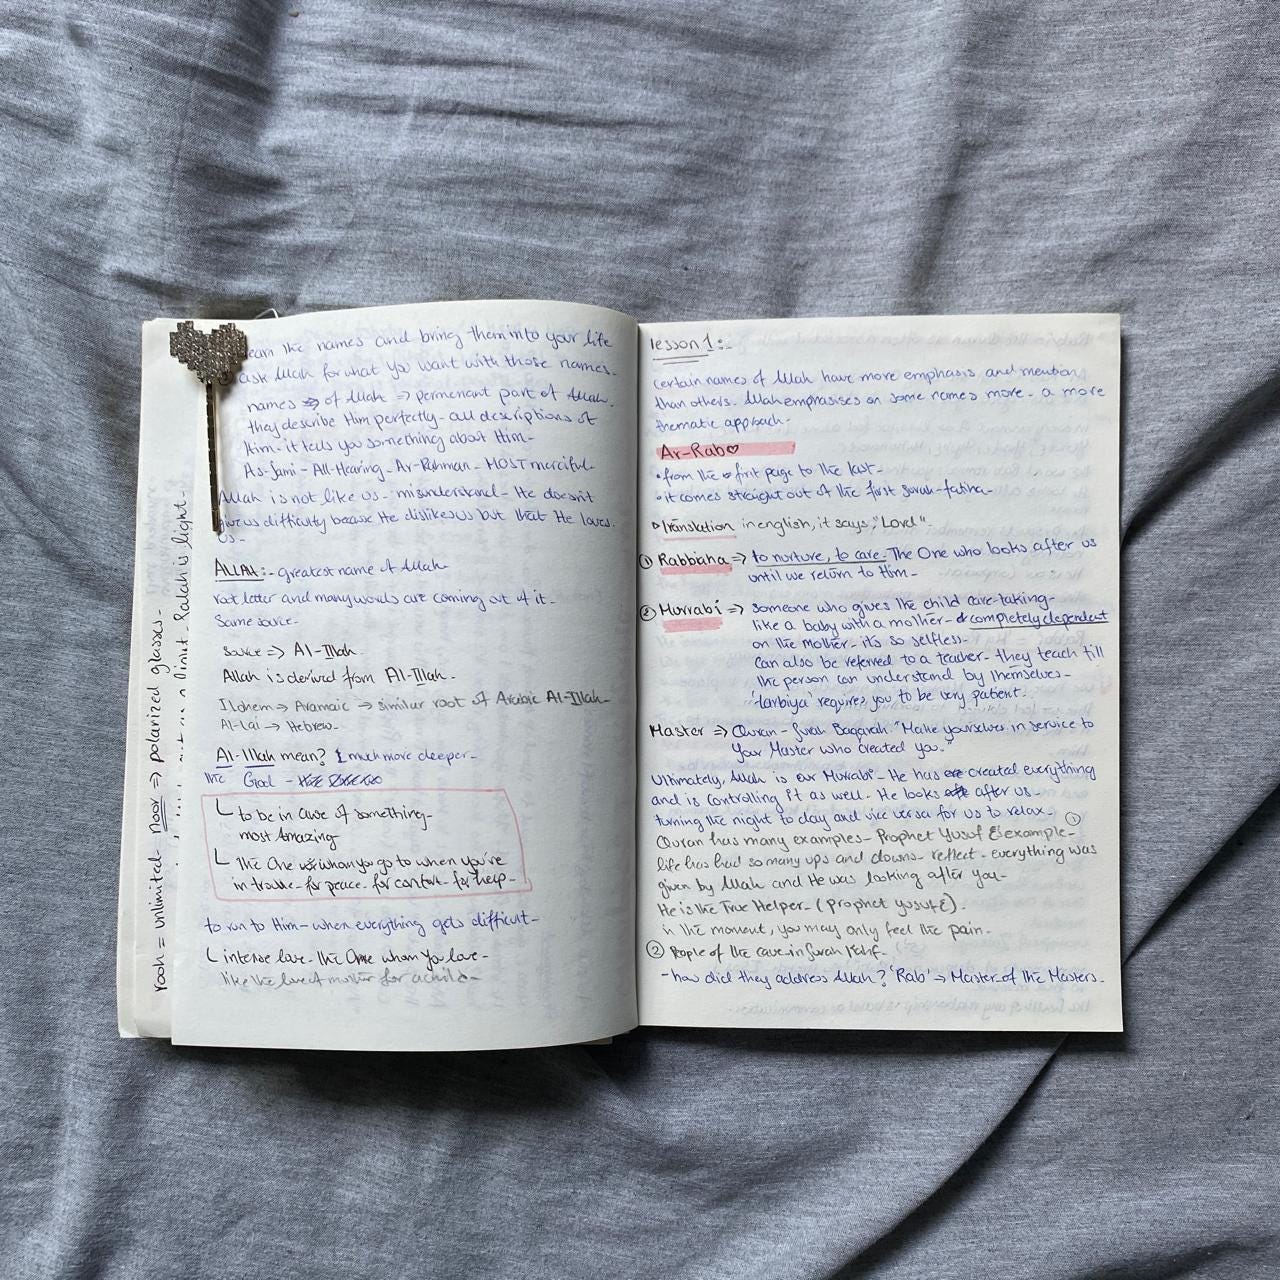 learn the names and bring them into your life
ask Allah for what you want with those names-
names of Allah => permenant part of Allah.
they describe Him perfectly- all descriptions of
Him- it tells you something about Him-
As-Jami- All-Hearing- Ar-Rahman- MOST merciful-
Allah is not like us- misunderstand- He doesn't
give us difficulty because He dislikes us but that He loves
us-
ALLAH:- greatest name of Allah
root letter and many words are coming out of it-
Same source-
source => Al-Illah
Allah is derived from Al-Illah-
Ilohem => Aramaic -> similar root of Arabic Al-Illah-
Al-Lai -> Hebrew-
Al-Illah mean? much more deeper-
the God -
to be in awe of something-
most Amazing-
The One whom you go to when you're
in trouble- for peace- for comfort- for help-
to run to Him- when everything gets difficult-
intense love- the One whom you love-
like the love of mother for a child-
rooh = unlimited- noor => polarized glasses-
Salah is light-
lesson 1:-
certain names of Allah have more emphasis and mention
than others- Allah emphasises on some names more- a more
thematic approach-
Ar-Rab♡
• from the first page to the last-
• it comes straight out of the first surah-fatiha-
translation in english, it says, "Lord"-
① Rabbana => to nurture, to care- The One who looks after us
until we return to Him-
② Murrabi => someone who gives the child care-taking-
like a baby with a mother- completely dependent
on the mother- it's so selfless-
Can also be referred to a teacher- they teach till
the person can understand by themselves-
'tarbiya' requires you to be very patient-
Master => Quran- Surah Baqarah- "Make yourselves in service to
Your Master who created you."
Ultimately, Allah is our Murrabi- He has created everything
and is controlling it as well- He looks after us-
turning the night to day and vice versa for us to relax- ①
Quran has many examples- Prophet Yusuf example-
life has had so many ups and downs- reflect- everything was
given by Allah and He was looking after you-
He is the True Helper- (prophet Yusuf)-
in the moment, you may only feel the pain-
② People of the cave- in Surah Kahf-
- how did they address Allah? 'Rab' -> Master of the Masters-